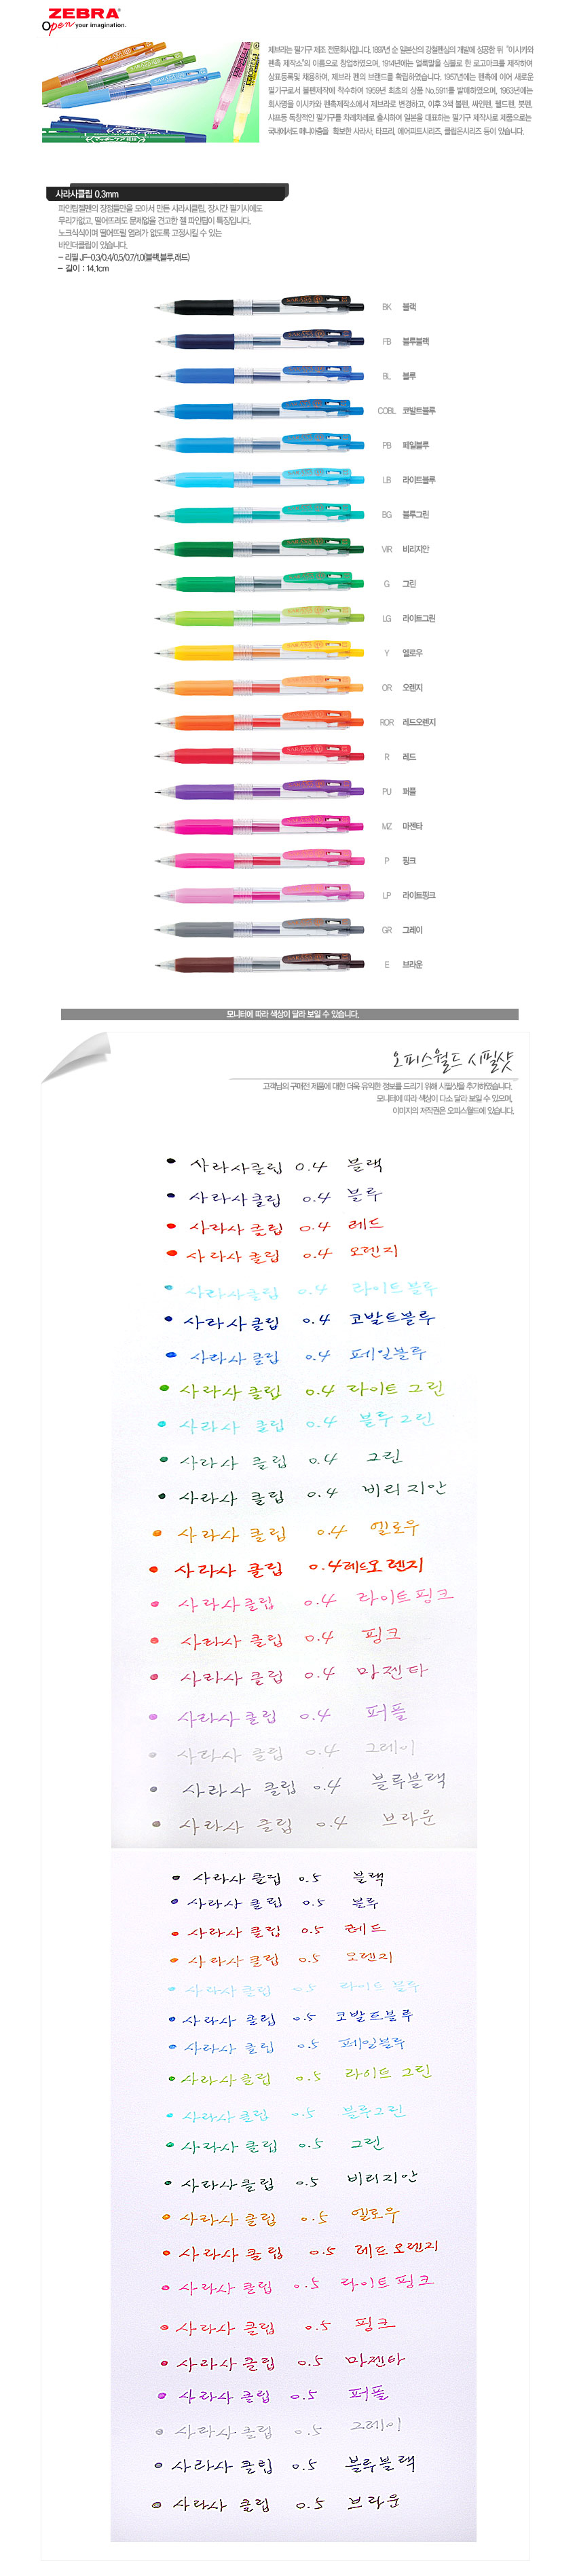 ZEBRA
Open your imagination.
제브라는 필기구 제조 전문회사입니다. 1897년 순 일본산의 강철펜심의 개발에 성공한 뒤 "이시카와
펜촉 제작소"의 이름으로 창업하였으며, 1914년에는 얼룩말을 심볼로 한 로고마크를 제작하여
상표등록및 채용하여, 제브라 펜의 브랜드를 확립하였습니다. 1957년에는 펜촉에 이어 새로운
필기구로서 볼펜제작에 착수하여 1959년 최초의 상품 No.5911를 발매하였으며, 1963년에는
회사명을 이시카와 펜촉제작소에서 제브라로 변경하고, 이후 3색 볼펜, 싸인펜, 웰드펜, 붓펜,
샤프등 독창적인 필기구를 차례차례로 출시하여 일본을 대표하는 필기구 제작사로 제품으로는
국내에서도 매니아층을 확보한 사라사, 타프리, 에어피트시리즈, 클립온시리즈 등이 있습니다.
사라사클립 0.3mm
파인팁젤펜의 장점들만을 모아서 만든 사라사클립, 장시간 필기시에도
무리가없고, 떨어뜨려도 문제없을 견고한 젤 파인팁이 특징입니다.
노크식식이며 떨어뜨릴 염려가 없도록 고정시킬 수 있는
바인더클립이 있습니다.
- 리필 JF-0.3/0.4/0.5/0.7/1.0(블랙,블루,래드)
- 길이 : 14.1cm
BK 블랙
FB 블루블랙
BL 블루
COBL 코발트블루
PB 페일블루
LB 라이트블루
BG 블루그린
VIR 비리지안
G 그린
LG 라이트그린
Y 옐로우
OR 오렌지
ROR 레드오렌지
R 레드
PU 퍼플
MZ 마젠타
P 핑크
LP 라이트핑크
GR 그레이
E 브라운
모니터에 따라 색상이 달라 보일 수 있습니다.
오피스월드 시필샷
고객님의 구매전 제품에 대한 더욱 유익한 정보를 드리기 위해 시필샷을 추가하였습니다.
모니터에 따라 색상이 다소 달라 보일 수 있으며,
이미지의 저작권은 오피스월드에 있습니다.
사라사클립 0.4 블랙
사라사클립 0.4 블루
사라사 클립 0.4 레드
사라사 클립 0.4 오렌지
사라사클립 0.4 라이트블루
사라사클립 0.4 코발트블루
사라사 클립 0.4 페일블루
사라사 클립 0.4 라이트 그린
사라사 클립 0.4 블루그린
사라사 클립 0.4 그린
사라사 클립 0.4 비리지안
사라사 클립 0.4 옐로우
사라사 클립 0.4 레드오렌지
사라사클립 0.4 라이트핑크
사라사 클립 0.4 핑크
사라사 클립 0.4 마젠타
사라사클립 0.4 퍼플
사라사 클립 0.4 그레이
사라사 클립 0.4 블루블랙
사라사 클립 0.4 브라운
사라사 클립 0.5 블랙
사라사 클립 0.5 블루
사라사 클립 0.5 레드
사라사 클립 0.5 오렌지
사라사 클립 0.5 라이트 블루
사라사 클립 0.5 코발트블루
사라사 클립 0.5 페일블루
사라사 클립 0.5 라이트 그린
사라사 클립 0.5 블루그린
사라사 클립 0.5 그린
사라사클립 0.5 비리지안
사라사 클립 0.5 옐로우
사라사 클립 0.5 레드오렌지
사라사 클립 0.5 라이트 핑크
사라사 클립 0.5 핑크
사라사 클립 0.5 마젠타
사라사 클립 0.5 퍼플
사라사 클립 0.5 그레이
사라사 클립 0.5 블루블랙
사라사 클립 0.5 브라운